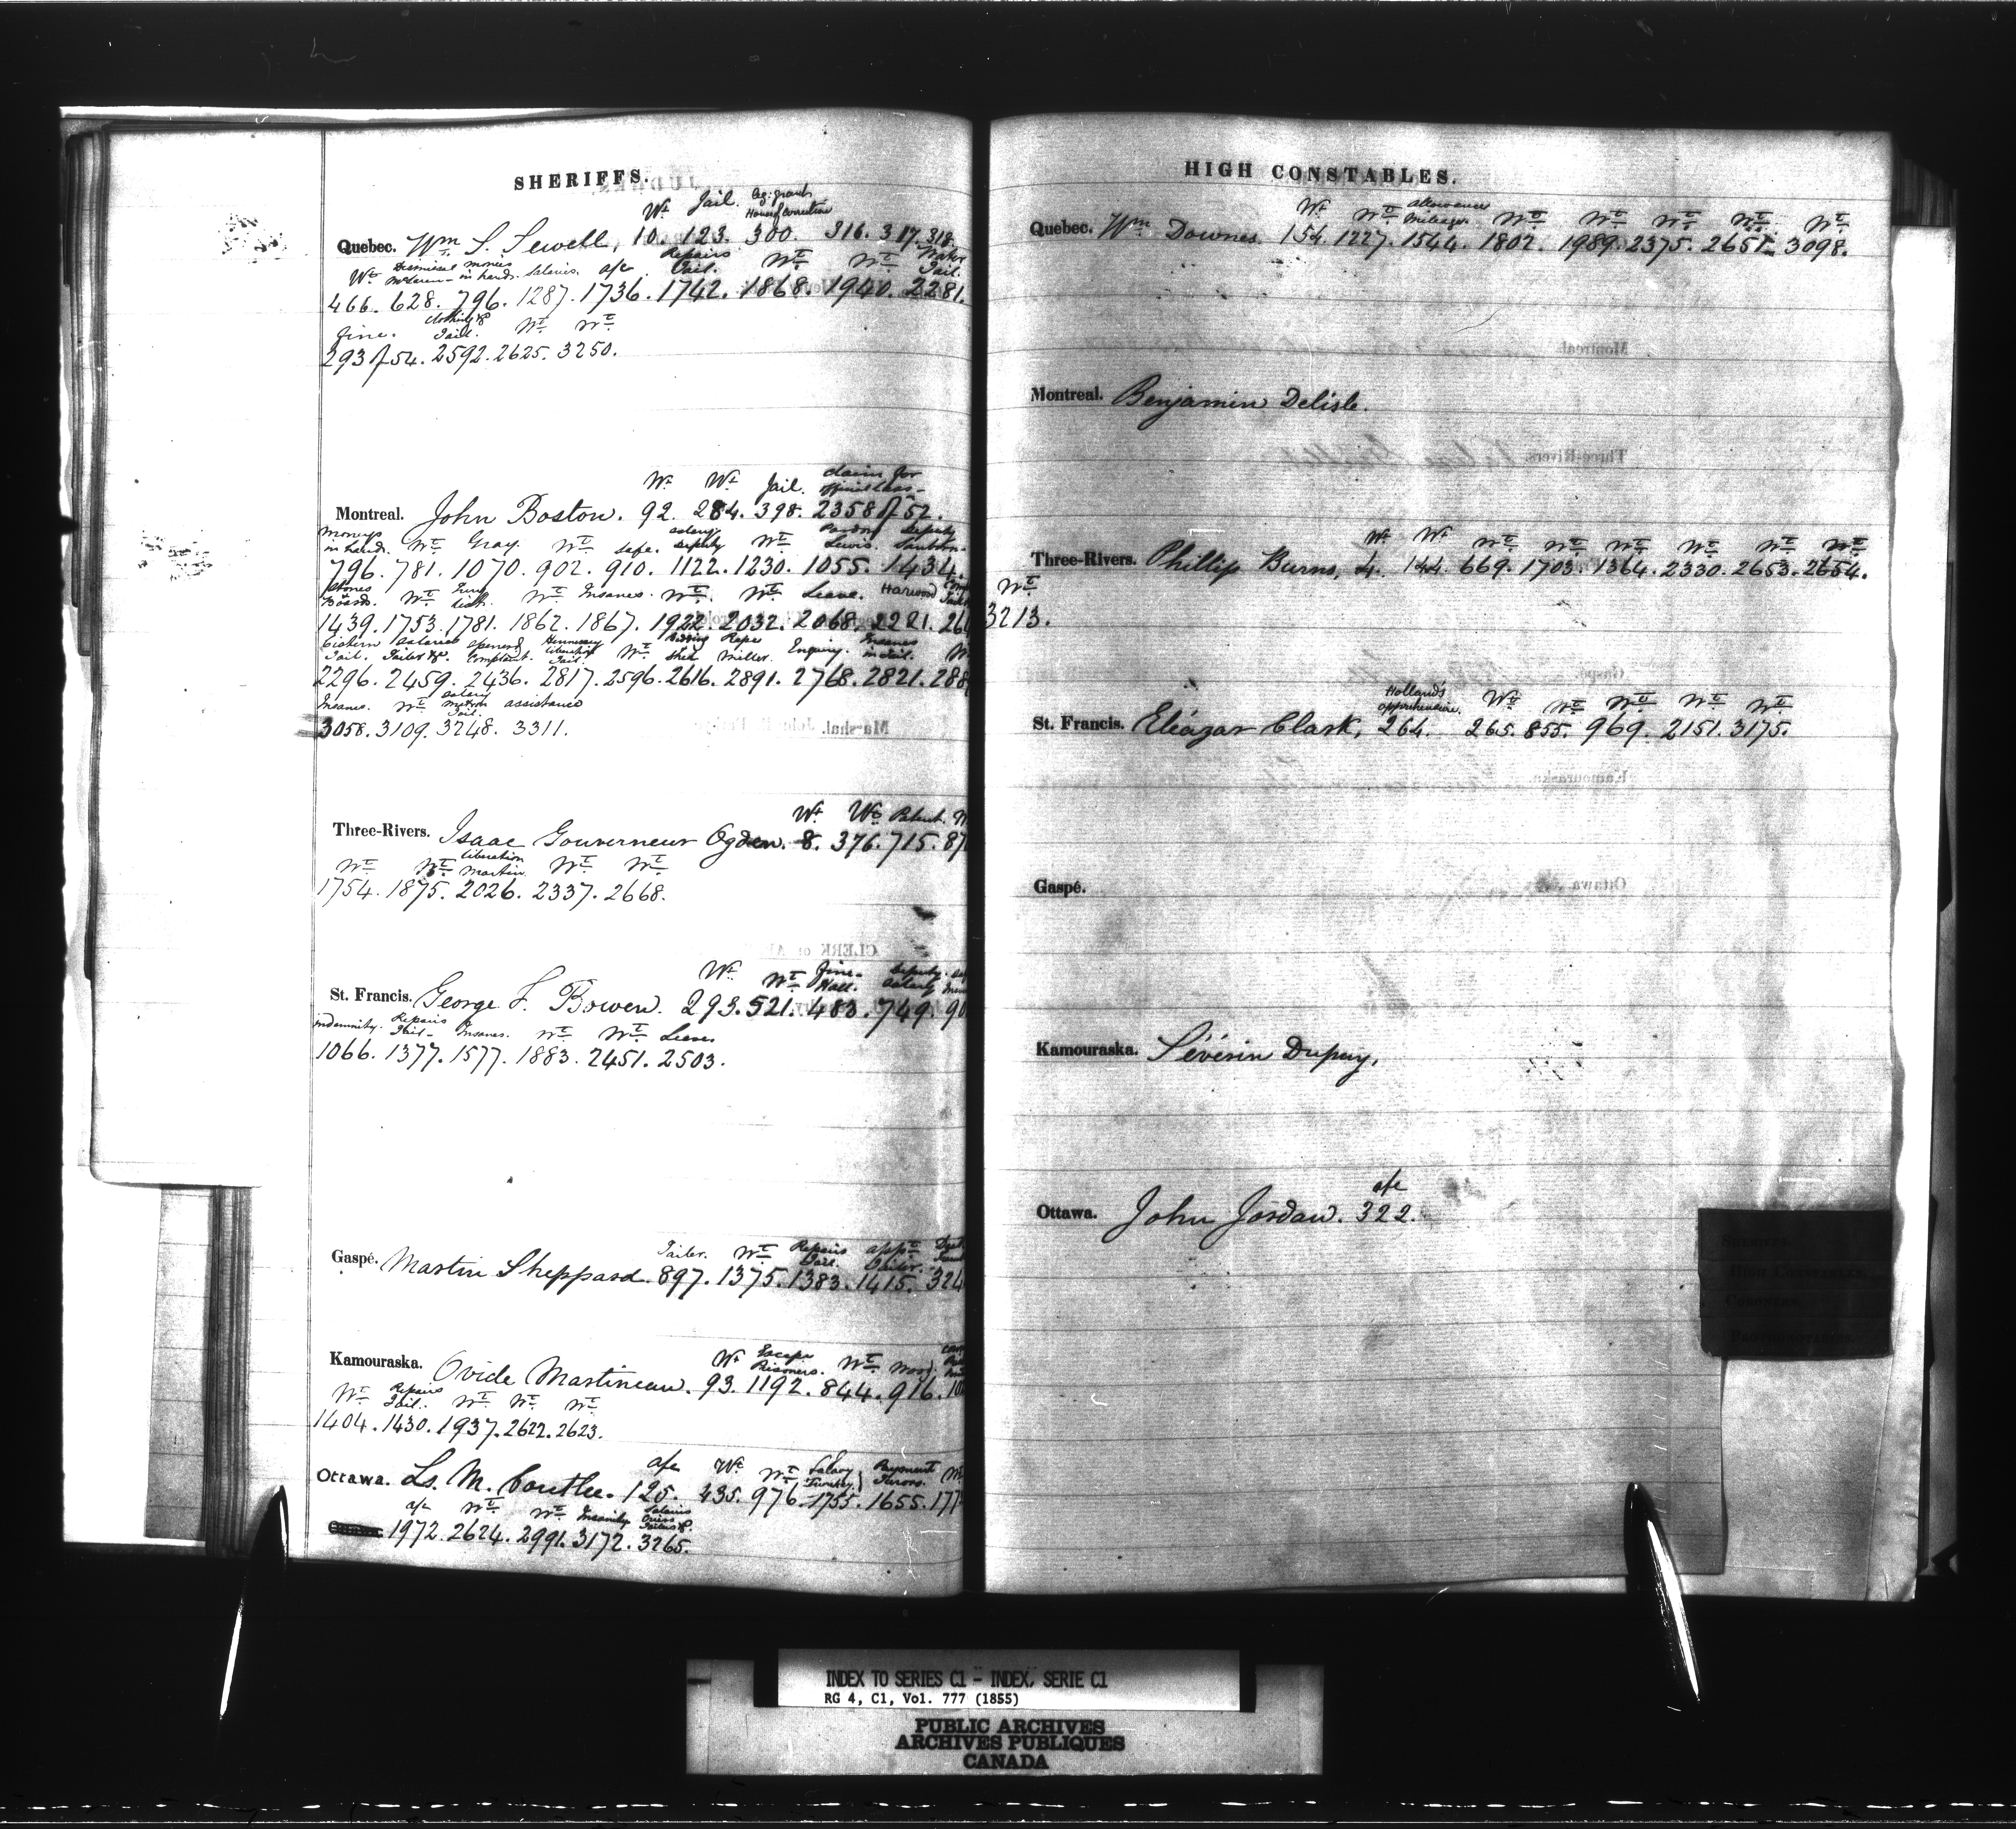 SHERIFFS.
Wt Jail. House of Correction
Quebec. Wm S. Sewell, 10. 123. 300. 316. 317. 318.
Wt Dismissal McLaren monies in hand. Salaries. a/c Repairs Jail. Wt Wt Water Jail.
466. 628. 796. 1287. 1736. 1742. 1868. 1940. 2281.
fine. clothing &c Jail. Wt Wt
293 f 54. 2592. 2625. 3250.
Wt Wt Jail. claims for
Montreal. John Boston. 92. 284. 398. 2358 f 52.
moneys in hand. Wt Gray. Wt safe. salary deputy Wt Pardon Lewis. Deputy
796. 781. 1070. 902. 910. 1122. 1230. 1055. 1434.
Stones & Boards. Wt Jury list. Wt Insanes. Wt. Wt Leave. Harwood
1439. 1753. 1781. 1862. 1867. 1922. 2032. 2068. 2221. 26
Cistern Jail. Salaries Jailer &c. Complaint. Hennessey liberation Jail. Wt shed Rope Miller. Enquiry. Insanes in Jail.
2296. 2459. 2436. 2817. 2596. 2616. 2891. 2768. 2821. 288
Insanes. Wt salary matron Jail. assistance
3058. 3109. 3248. 3311.
Wt Wt Patent.
Three-Rivers. Isaac Gouverneur Ogden. 8. 376. 715. 87
Wt Wt liberation Martin. Wt Wt
1754. 1875. 2026. 2337. 2668.
Wt Wt fine Hall. Deputy salary
St. Francis. George F. Bowen. 293. 521. 483. 749. 90
indemnity. Repairs Jail. Insanes. Wt Wt Leave
1066. 1377. 1577. 1883. 2451. 2503.
Jailer. Wt Repairs Jail. appt Jailer.
Gaspé. Martin Sheppard. 897. 1375. 1383. 1415. 324
Wt Escape Prisoners. Wt Wood.
Kamouraska. Ovide Martineau. 93. 1192. 844. 916. 10
Wt Repairs Jail. Wt Wt Wt
1404. 1430. 1937. 2622. 2623.
a/c Wt Wt Salary Turnkey Payment Jurors.
Ottawa. Ls. M. Coutlee. 125. 435. 976. 1755. 1655. 177
a/c Wt Wt Insanity Salaries
1972. 2624. 2991. 3172. 3265.
HIGH CONSTABLES.
Wt Wt allowance mileage Wt Wt Wt Wt Wt
Quebec. Wm Downes. 154. 1227. 1544. 1802. 1989. 2375. 2651. 3098.
Montreal. Benjamin Delisle.
Wt Wt Wt Wt Wt Wt Wt Wt
Three-Rivers. Phillip Burns, 4. 144. 669. 1703. 1364. 2330. 2653. 2654.
Wt
3213.
Holland's apprehension. Wt Wt Wt Wt Wt
St. Francis. Eleázar Clark, 264. 265. 855. 969. 2151. 3175.
Gaspé.
Kamouraska. Sévérin Dupuy.
a/c
Ottawa. John Jordan. 322.
SHERIFFS.
HIGH CONSTABLES.
CORONERS.
PROTHONOTARIES.
INDEX TO SERIES C1 - INDEX, SERIE C1
RG 4, C1, Vol. 777 (1855)
PUBLIC ARCHIVES
ARCHIVES PUBLIQUES
CANADA